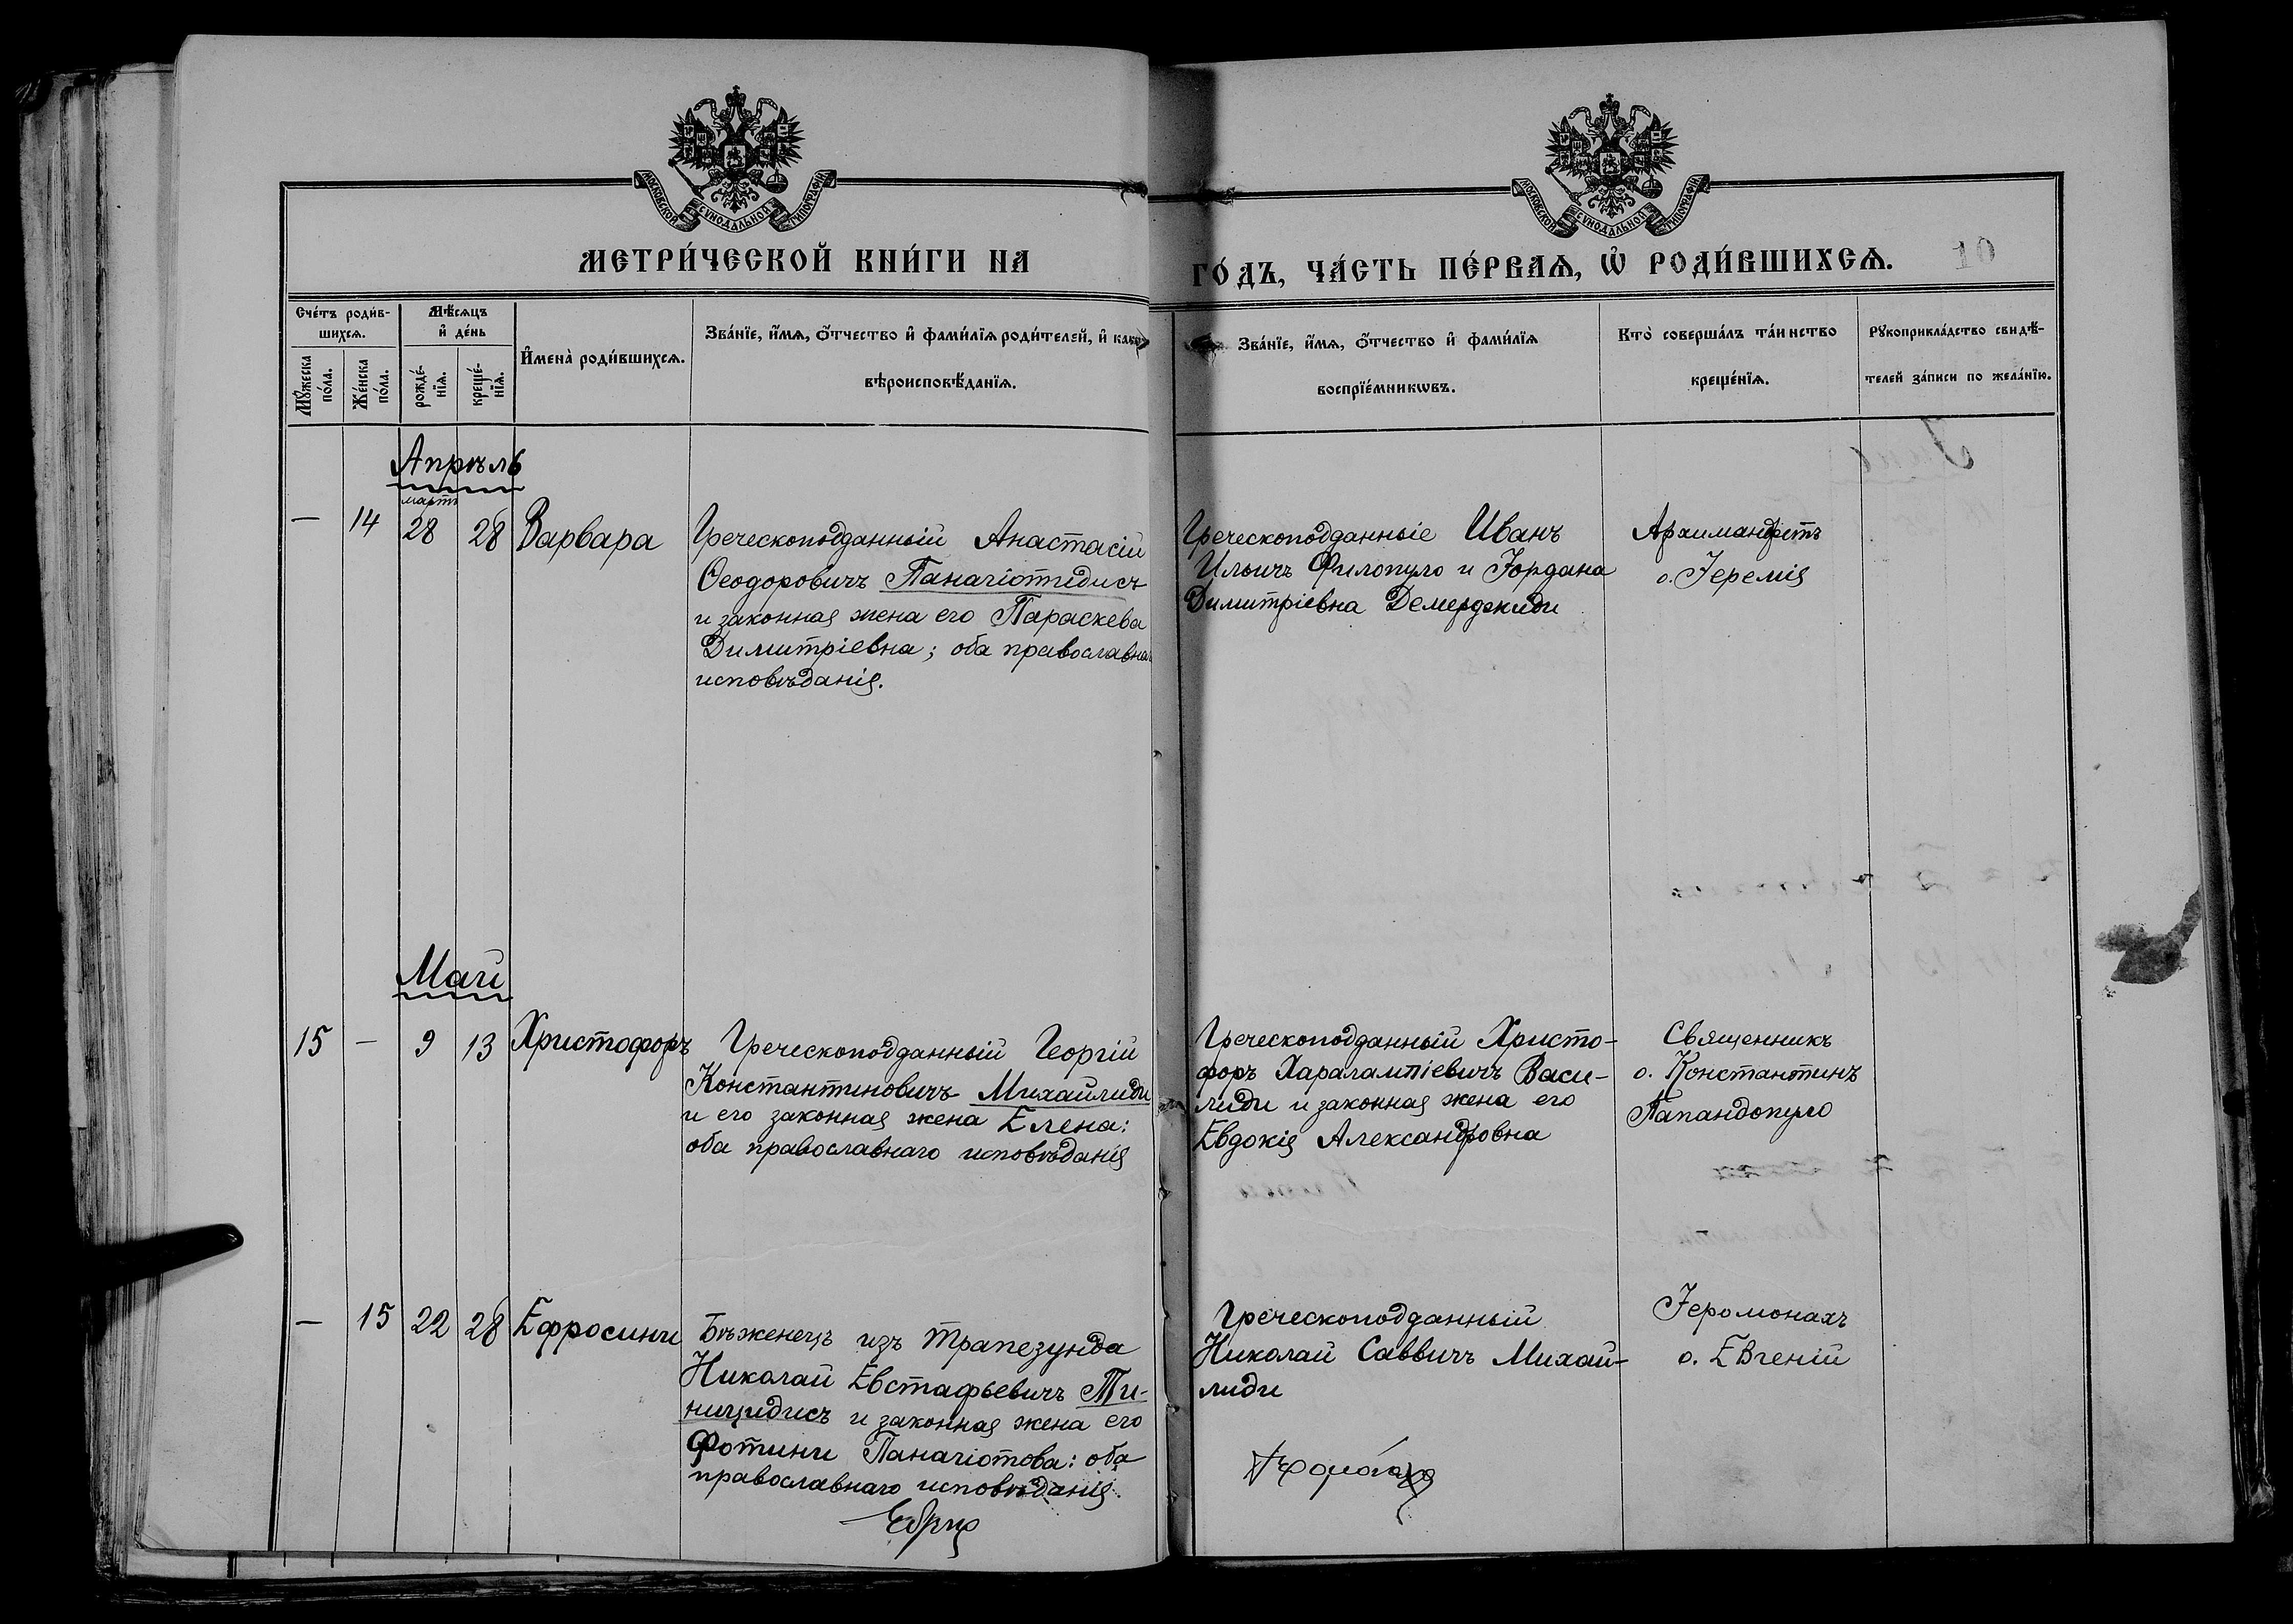 МОСКОВСКОЙ СѴНОДАЛЬНОЙ ТИПОГРАФІИ
МОСКОВСКОЙ СѴНОДАЛЬНОЙ ТИПОГРАФІИ
МЕТРИ́ЧЕСКОЙ КНИ́ГИ НА
ГО́ДЪ, ЧА́СТЬ ПЕ́РВАѦ, Ѡ҆ РОДИ́ВШИХСѦ.
10
Сче́тъ роди́в-
шихсѧ.
Мѣ́сѧцъ
и҆ де́нь
Мꙋ́жеска
по́ла.
Же́нска
по́ла.
рожде́-
нїѧ.
креще́-
нїѧ.
И҆мена̀ роди́вшихсѧ.
Зва́нїе, и҆́мѧ, ѻ҆́тчество и҆ фами́лїѧ роди́телей, и҆ како
вѣроисповѣ́данїѧ.
Зва́нїе, и҆́мѧ, ѻ҆́тчество и҆ фами́лїѧ
воспрїе́мникѡвъ.
Кто̀ соверша́лъ та́инство
креще́нїѧ.
Рꙋкоприкла́дство свидѣ́-
телей за́писи по жела́нїю.
Апрѣль
мартъ
— 14 28 28 Варвара
Греческоподданный Анастасій
Ѳеодоровичъ Панагіотидисъ
и законная жена его Параскева
Димитріевна; оба православна
исповѣданія.
Греческоподданные Иванъ
Ильичъ Филопуло и Іордана
Димитріевна Демерджиди
Архимандритъ
о. Іеремія
Май
15 — 9 13 Христофоръ
Греческоподданный Георгій
Константиновичъ Михайлиди
и его законная жена Елена:
оба православнаго исповѣданія
Греческоподданный Христо-
форъ Харалампіевичъ Васи-
лиди и законная жена его
Евдокія Александровна
Священникъ
о. Константинъ
Папандопуло
— 15 22 28 Ефросини
Бѣженецъ изъ Трапезунда
Николай Евстафьевичъ Ти-
ницидисъ и законная жена его
Фотини Панагіотова: оба
православнаго исповѣданія.
Греческоподданный
Николай Саввичъ Михай-
лиди
Іеромонахъ
о. Евгеній